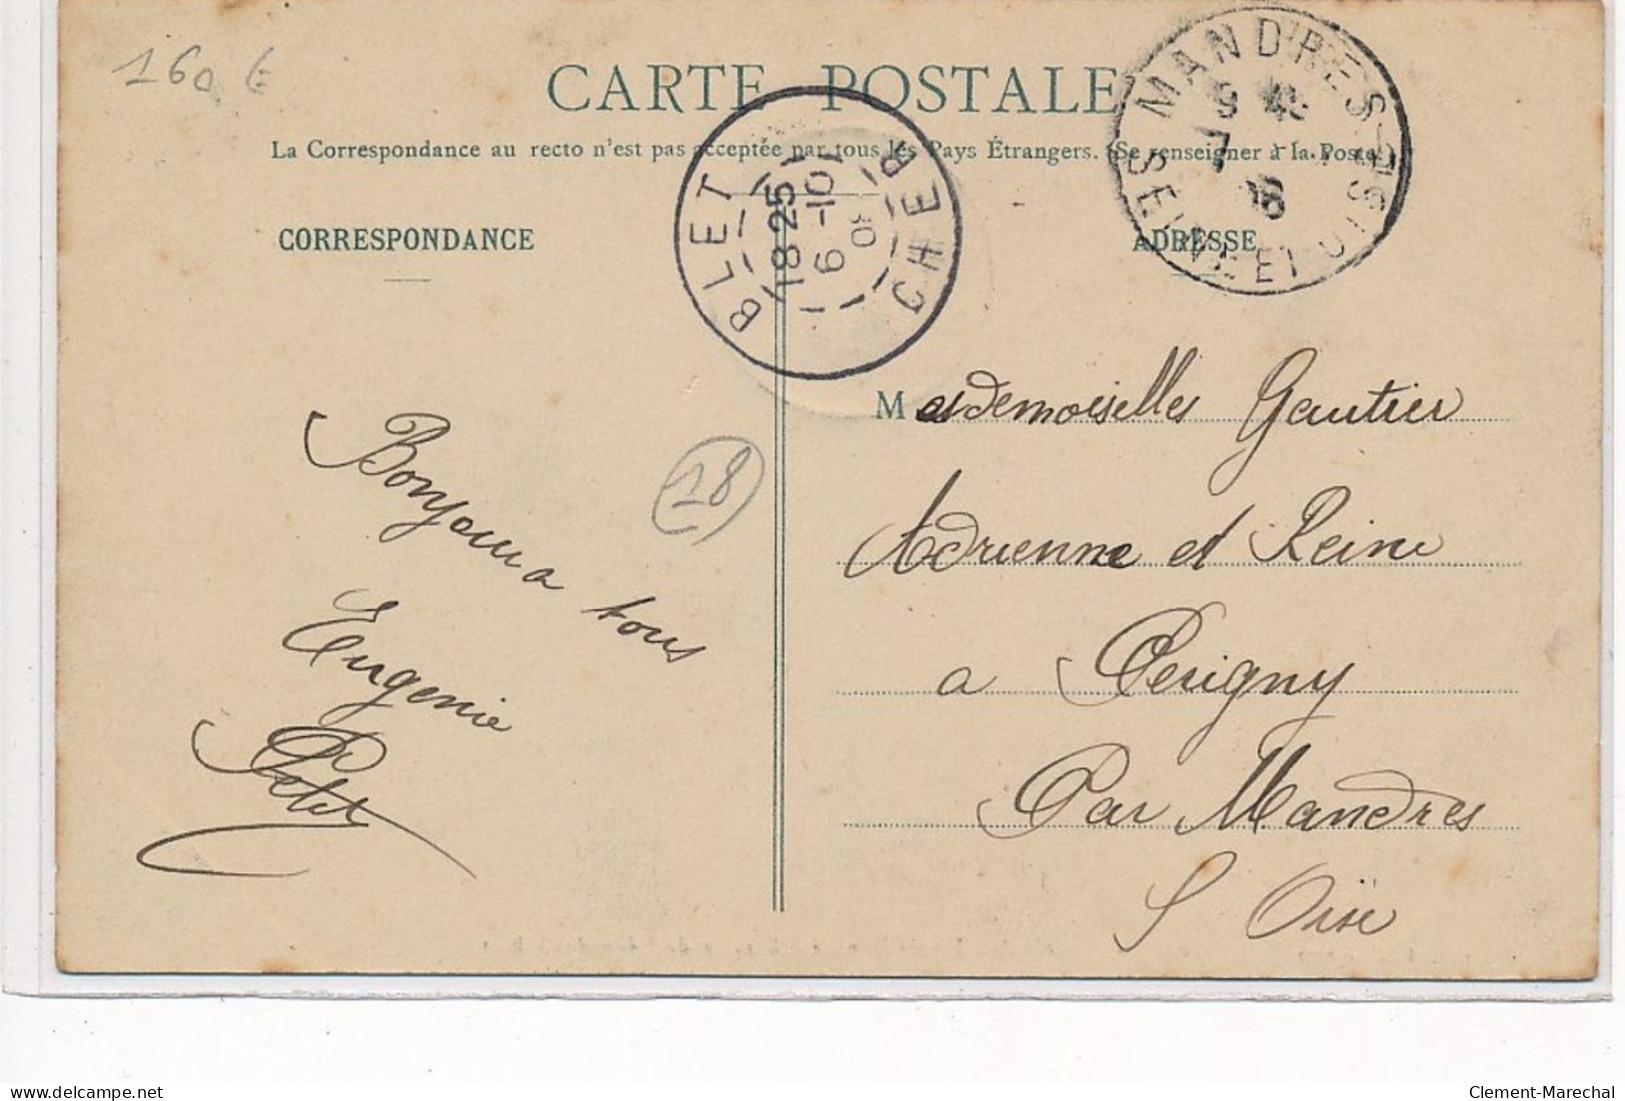 160 €
CARTE POSTALE
La Correspondance au recto n'est pas acceptée par tous les Pays Étrangers. (Se renseigner à la Poste.)
BLET
18 25
6-10
CHER
MANDRES
SEINE ET OISE
CORRESPONDANCE
ADRESSE
Bonjour a tous
Eugenie
Petit
28
Mesdemoiselles Gautier
Adrienne et Reine
a Perigny
Par Mandres
S Oise
Clement-Marechal
delcampe.net